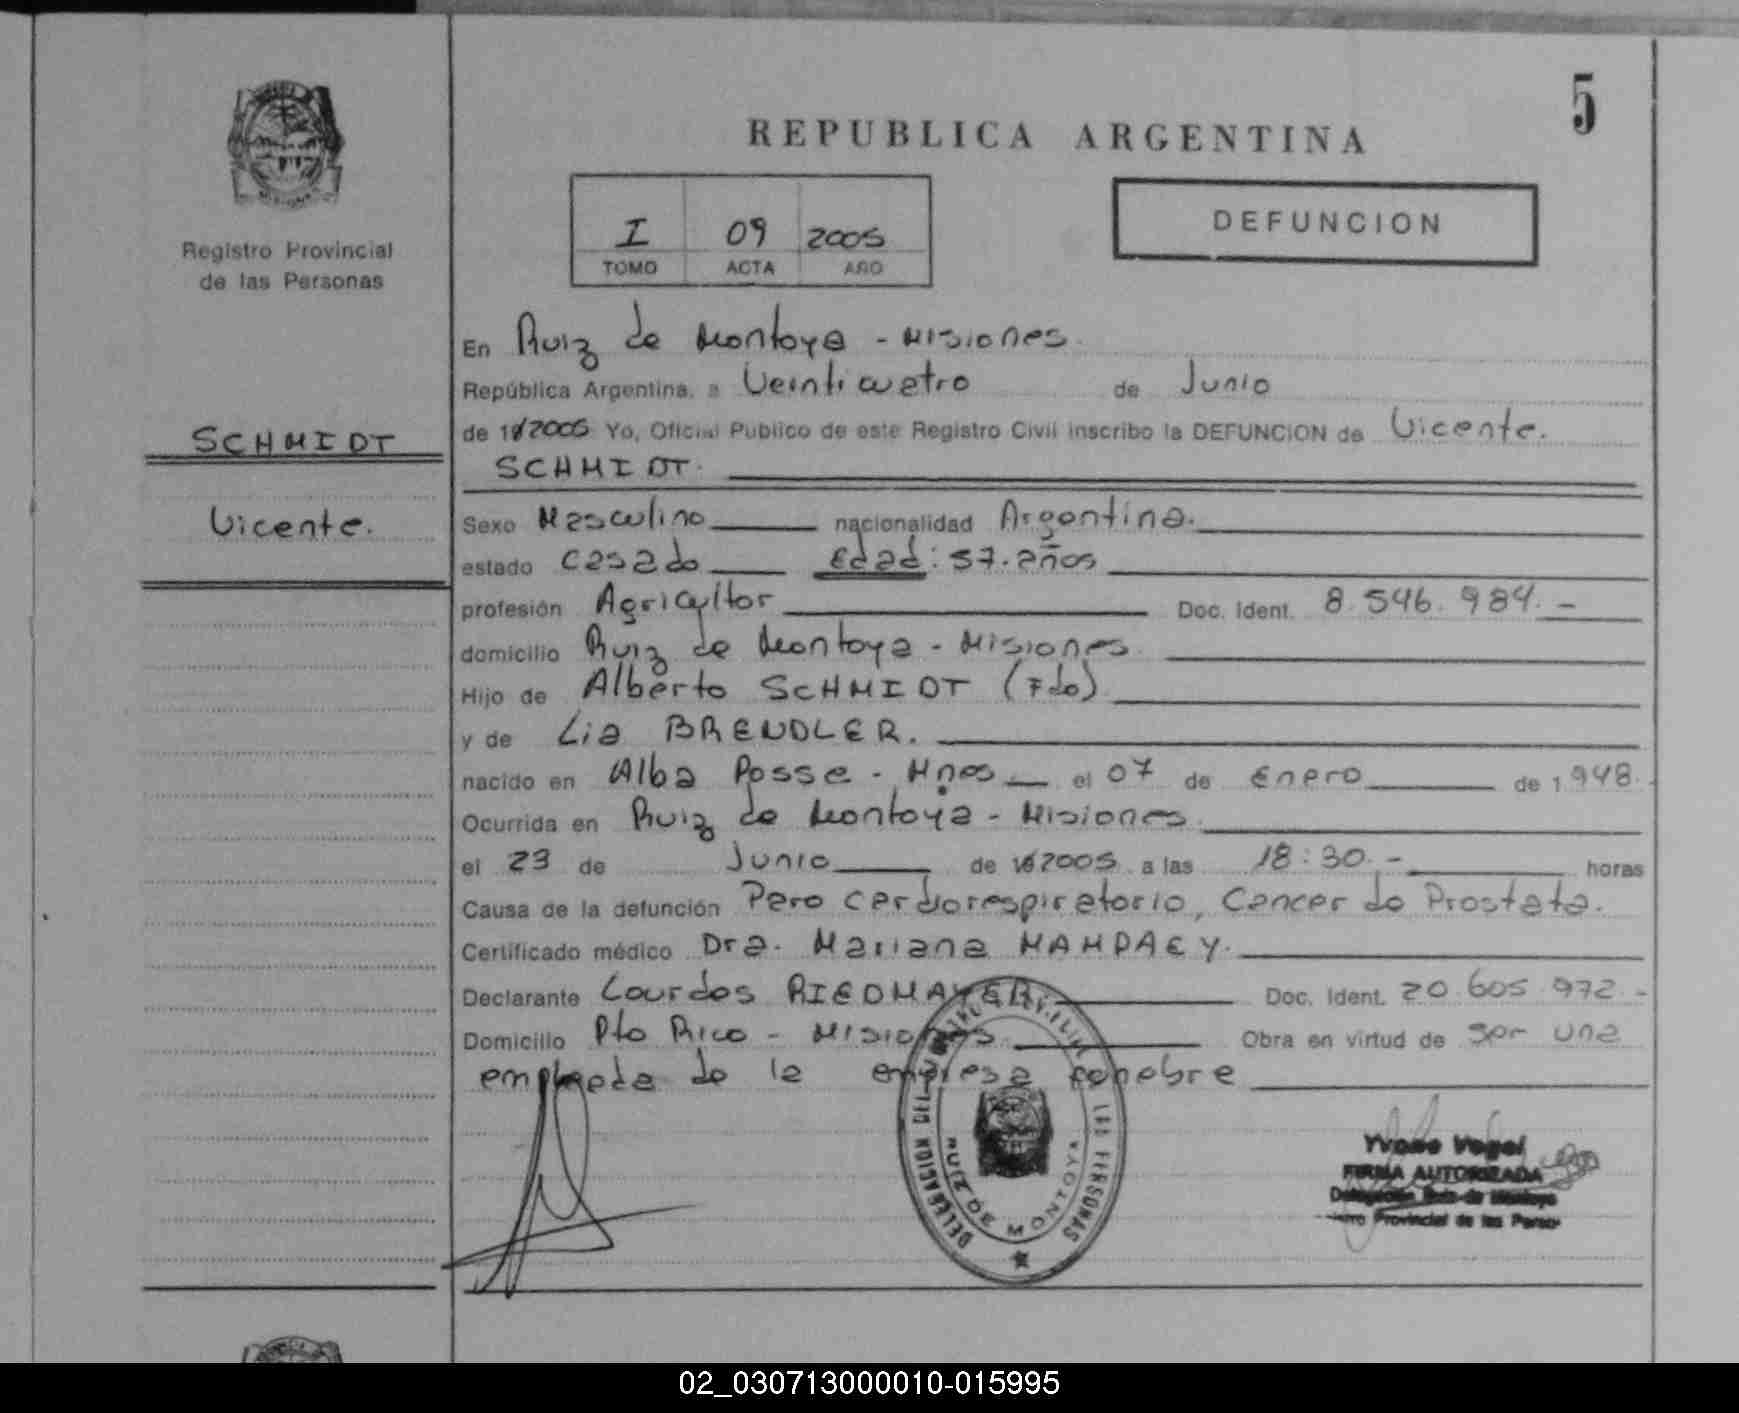 5
REPUBLICA ARGENTINA
I 09 2005
TOMO ACTA AÑO
DEFUNCION
Registro Provincial
de las Personas
SCHMIDT
Vicente.
En Ruiz de Montoya - Misiones.
República Argentina, a Veinticuatro de Junio
de 19/2005 Yo, Oficial Publico de este Registro Civil inscribo la DEFUNCION de Vicente.
SCHMIDT.
Sexo Masculino nacionalidad Argentina.
estado casado Edad: 57. años
profesión Agricultor Doc. Ident. 8.546.984.-
domicilio Ruiz de Montoya - Misiones.
Hijo de Alberto SCHMIDT (Fdo)
y de Lia BRENDLER.
nacido en Alba Posse - Mnes. el 07 de Enero de 1.948.
Ocurrida en Ruiz de Montoya - Misiones.
el 23 de Junio de 2005 a las 18:30.- horas
Causa de la defunción Paro cardiorespiratorio, Cancer de Prostata.
Certificado médico Dra. Mariana
Declarante Lourdes RIEDMAYER. Doc. Ident. 20.605.972.-
Domicilio Pto Rico - Misiones. Obra en virtud de ser una
empleada de la empresa fúnebre
DELEGACION DEL LAS PERSONAS
RUIZ DE MONTOYA
Yvone Vogel
FIRMA AUTORIZADA
Delegación Ruiz de Montoya
Provincial de las
02_030713000010-015995